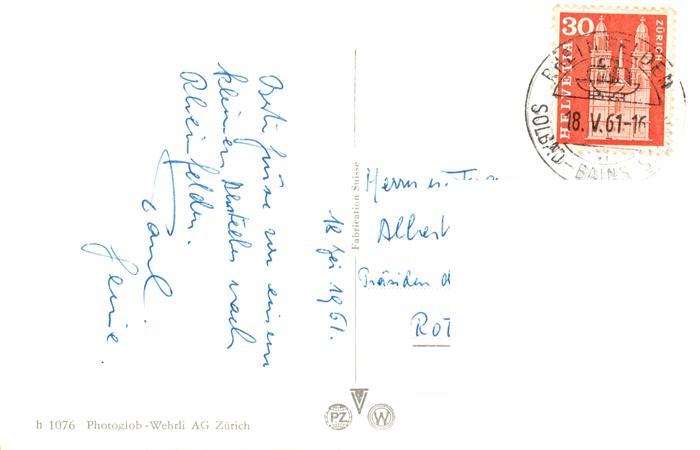 Beste Grüsse von einem
kleinen Abstecher nach
Rheinfelden.
Paul
18 Mai 1961.
Fabrication Suisse
Herrn u.
Albert
Präsiden d
ROT
30
HELVETIA
ZÜRICH
RHEINFELDEN
18.V.61-16
SOLBAD-BAINS
h 1076 Photoglob-Wehrli AG Zürich
PZ
W